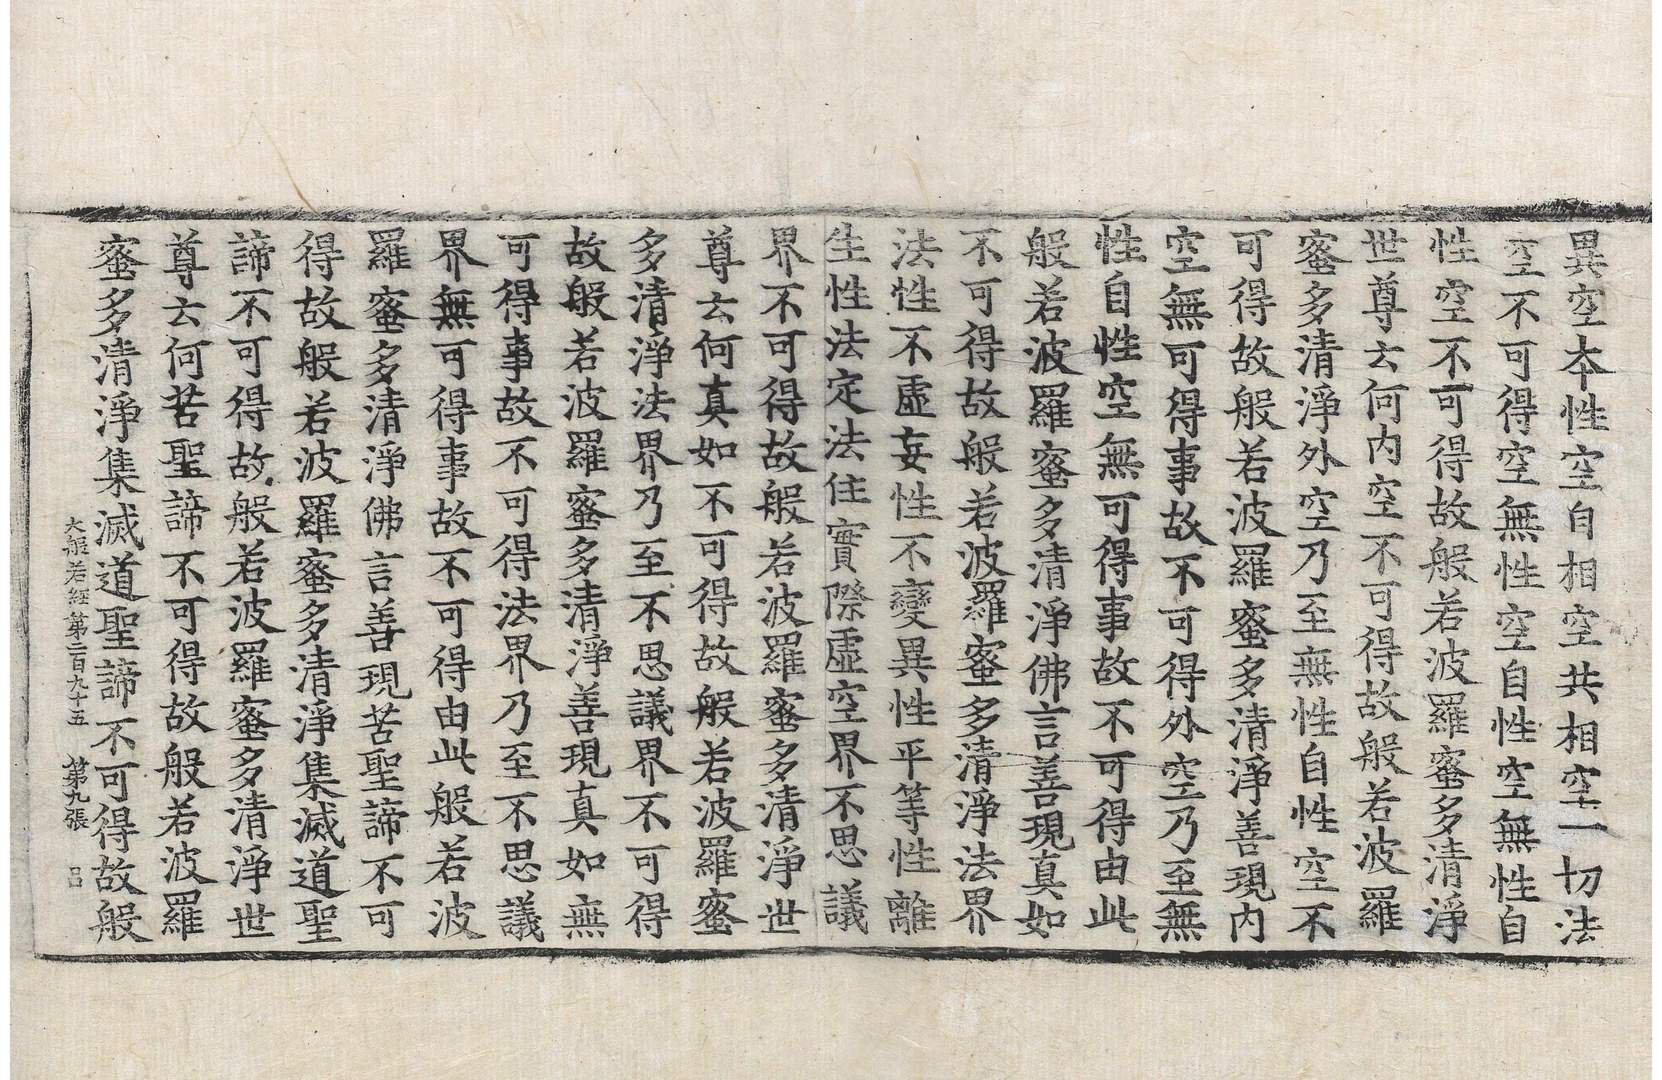 異空本性空自相空共相空一切法
空不可得空無性空自性空無性自
性空不可得故般若波羅蜜多清淨
世尊云何内空不可得故般若波羅
蜜多清淨外空乃至無性自性空不
可得故般若波羅蜜多清淨善現内
空無可得事故不可得外空乃至無
性自性空無可得事故不可得由此
般若波羅蜜多清淨佛言善現真如
不可得故般若波羅蜜多清淨法界
法性不虛妄性不變異性平等性離
生性法定法住實際虛空界不思議
界不可得故般若波羅蜜多清淨世
尊云何真如不可得故般若波羅蜜
多清淨法界乃至不思議界不可得
故般若波羅蜜多清淨善現真如無
可得事故不可得法界乃至不思議
界無可得事故不可得由此般若波
羅蜜多清淨佛言善現苦聖諦不可
得故般若波羅蜜多清淨集滅道聖
諦不可得故般若波羅蜜多清淨世
尊云何苦聖諦不可得故般若波羅
蜜多清淨集滅道聖諦不可得故般
大般若經第二百九十五 第九張 吕